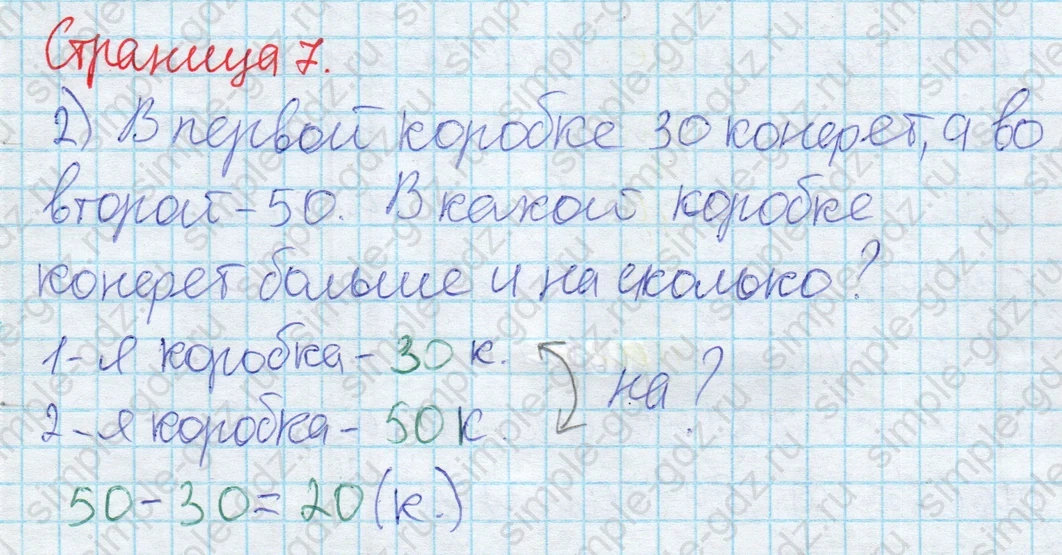 Страница 7.
2) В первой коробке 30 конфет, а во
второй - 50. В какой коробке
конфет больше и на сколько?
1-я коробка - 30 к.
на ?
2-я коробка - 50 к.
50 - 30 = 20 (к.)
simple-gdz.ru